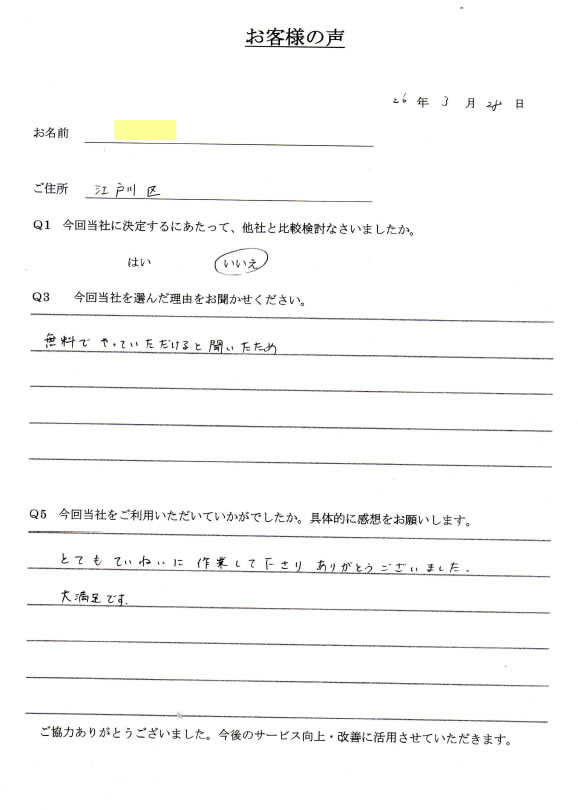 お客様の声
26 年 3 月 28 日
お名前
ご住所 江戸川区
Q1 今回当社に決定するにあたって、他社と比較検討なさいましたか。
はい いいえ
Q3 今回当社を選んだ理由をお聞かせください。
無料でやっていただけると聞いたため
Q5 今回当社をご利用いただいていかがでしたか。具体的に感想をお願いします。
とてもていねいに作業して下さりありがとうございました。
大満足です。
ご協力ありがとうございました。今後のサービス向上・改善に活用させていただきます。